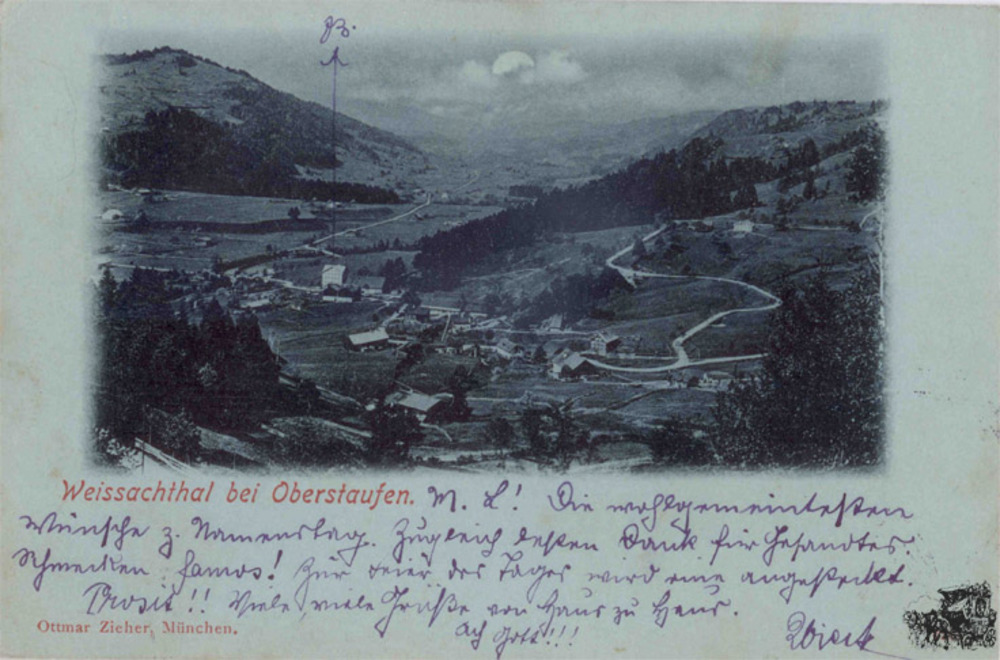 B.
Weissachthal bei Oberstaufen. M. L! Die wohlgemeintesten
Wünsche z. Namenstag. Zugleich besten Dank für Gesandtes.
Schmecken famos! Zur Feier des Tages wird eine angesteckt.
Prosit!! Viele, viele Grüße von Haus zu Haus.
Ach Gott!!!
Ottmar Zieher, München.